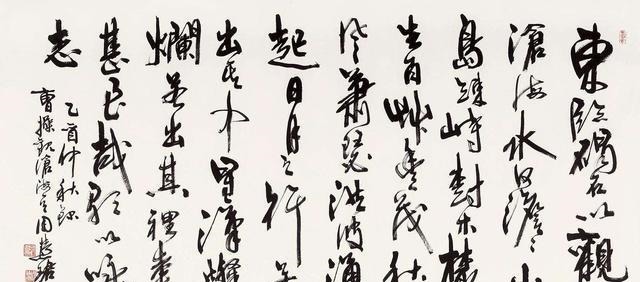 東臨碣石以觀
滄海水何澹々山
島竦峙樹木叢
生百艸豐茂秋
風蕭瑟洪波涌
起日月之行若
出其中星漢燦
爛若出其裡幸
甚至哉歌以詠
志
乙酉仲秋錄
曹操觀滄海周慧珺